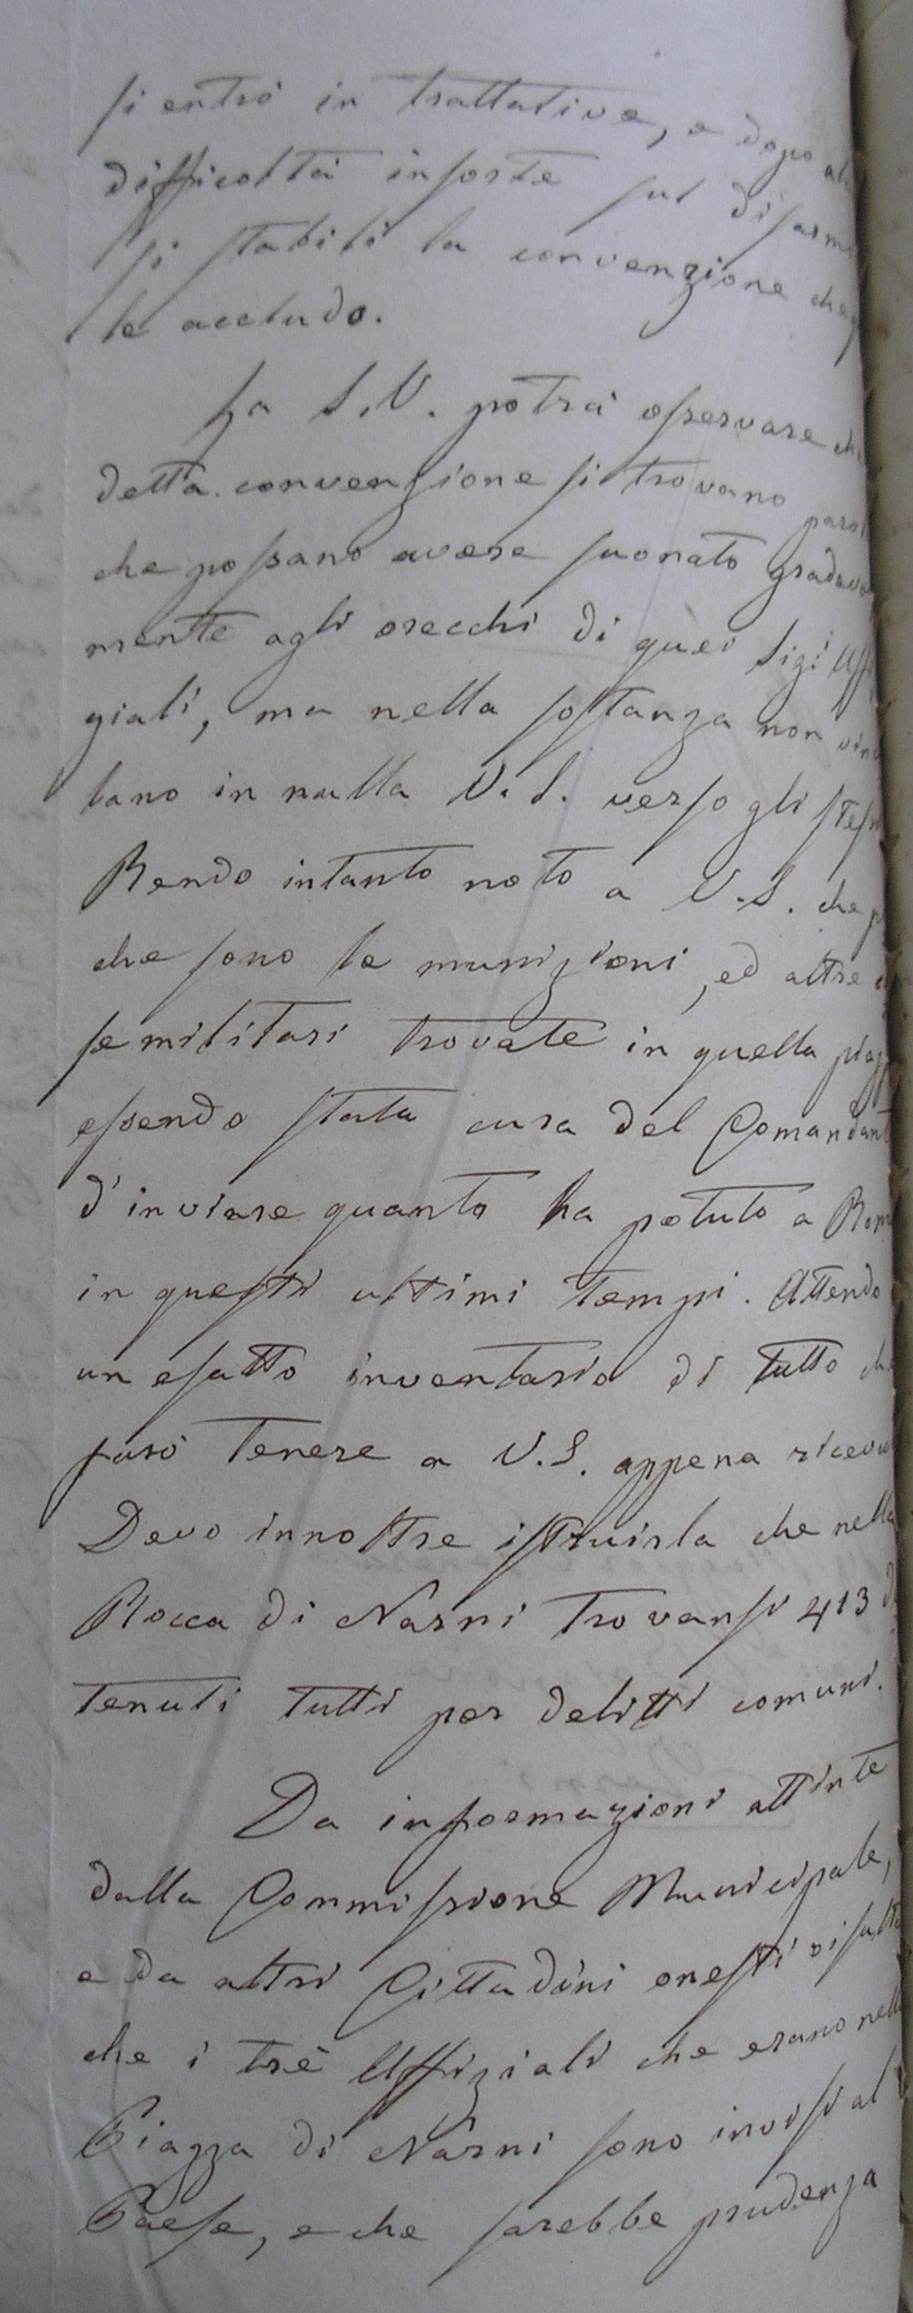 si entrò in trattative, e dopo
difficoltà insorte sul
si stabilì la convenzione che
le accludo.
La S. V. potrà osservare
detta convenzione si trovano
che possano avere suonato
mente agli orecchi di quei Sigi
ziali, ma nella sostanza non
lano in nulla V. S. verso gli
Rendo intanto noto a V. S. che
che sono le munizioni, ed altre
se militari trovate in quella
essendo stata cura del
d'inviare quanto ha potuto a
in questi ultimi tempi. Attendo
un esatto inventario di tutto
farò tenere a V. S. appena
Devo innoltre istruirla che
Rocca di Narni trovansi 413
tenuti tutti per delitti comuni.
Da informazioni attinte
dalla Commissione Municipale,
e da altri Cittadini onesti
che i tre Uffiziali che erano
Piazza di Narni sono invisi al
Paese, e che sarebbe prudenza